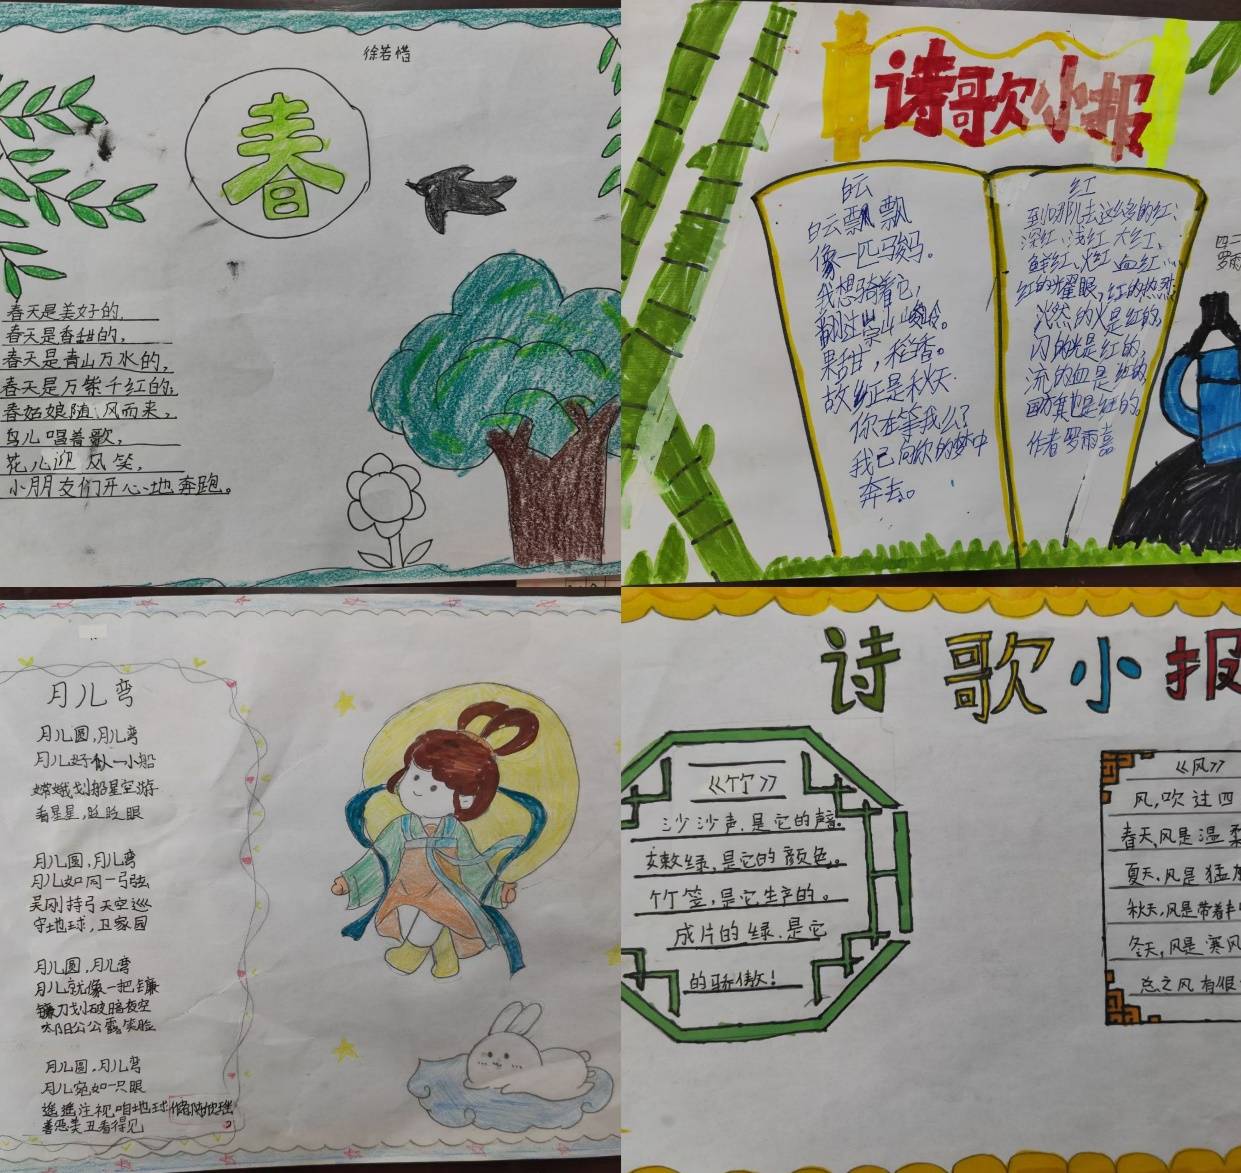 徐若惜
春
春天是美好的,
春天是香甜的,
春天是青山万水的,
春天是万紫千红的;
春姑娘随风而来,
鸟儿唱着歌,
花儿迎风笑,
小朋友们开心地奔跑。
诗歌小报
白云
白云飘飘
像一匹马妈。
我想骑着它,
翻过崇山峻岭。
果甜,稻香。
故乡正是秋天.
你在等我么?
我已向你的梦中
奔去。
红
到哪儿去这么多的红:
深红、浅红、大红、
鲜红、火红、血红
红的耀眼,红的热烈
火然的火是红的,
闪的光是红的,
流的血是红的,
国旗也是红的。
作者罗雨嘉
四二
罗雨
月儿弯
月儿圆,月儿弯
月儿好似一小船
嫦娥划船星空游
看星星,眨眨眼
月儿圆,月儿弯
月儿如同一弓弦
吴刚持弓天空巡
守地球,卫家园
月儿圆,月儿弯
月儿就像一把镰
镰刀划破暗夜空
太阳公公露笑脸
月儿圆,月儿弯
月儿宛如一只眼
遥遥注视咱地球
善恶美丑看得见
诗歌小报
《竹》
沙沙声,是它的声音。
嫩绿,是它的颜色。
竹签,是它生产的。
成片的绿,是它
的骄傲!
《风》
风,吹过四
春天,风是温柔
夏天,风是猛
秋天,风是带着丰
冬天,风是寒风
总之风有很